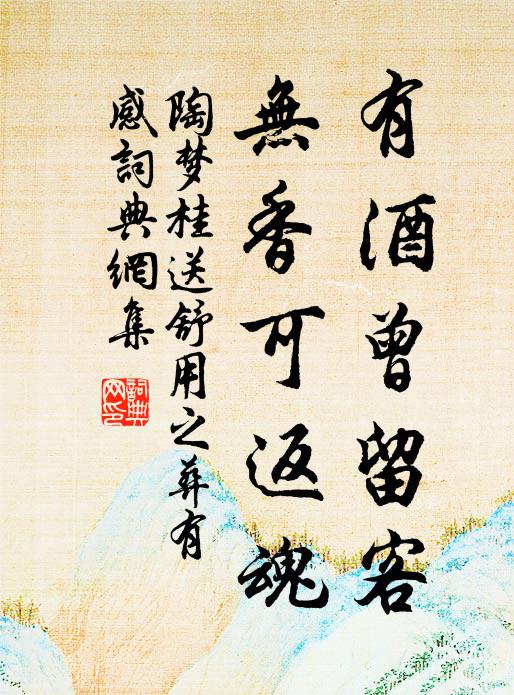 有酒曾留客
無香可返魂
陶梦桂送舒用之葬有
感詞典網集
詞典网印